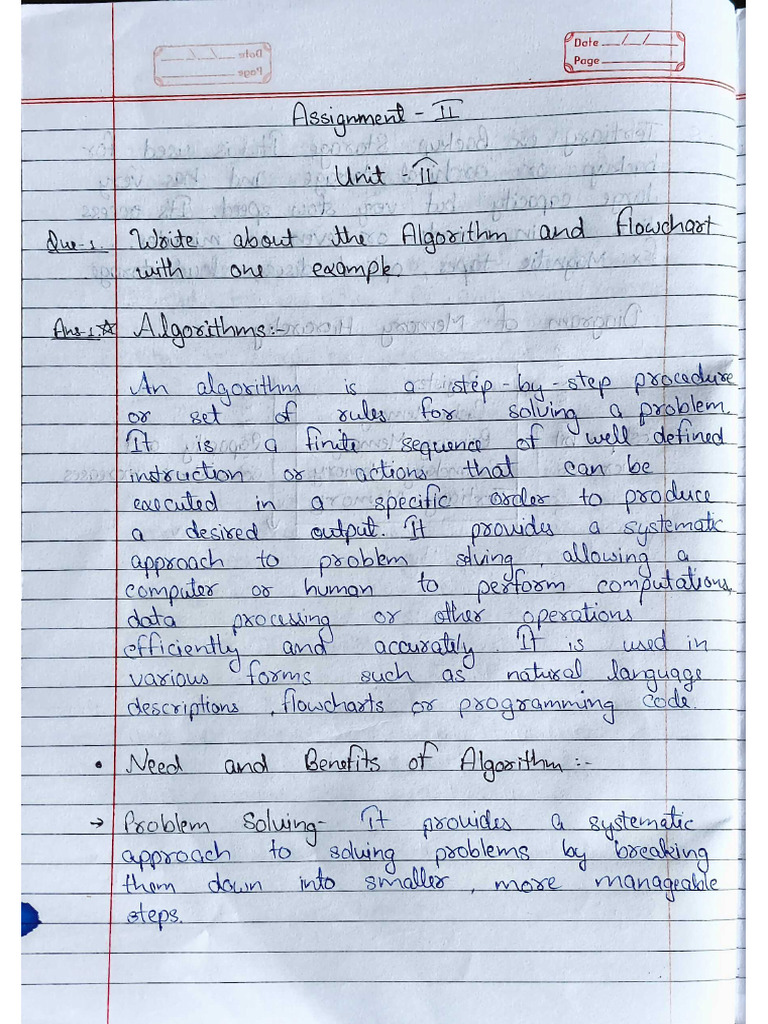 Date __/__/__
Page ________
Assignment - II
Unit - II
Que-1. Write about the Algorithm and flowchart
with one example.
Ans-1.☆ Algorithms:-
An algorithm is a step-by-step procedure
or set of rules for solving a problem.
It is a finite sequence of well defined
instruction or actions that can be
executed in a specific order to produce
a desired output. It provides a systematic
approach to problem solving, allowing a
computer or human to perform computations,
data processing or other operations
efficiently and accurately. It is used in
various forms such as natural language
descriptions, flowcharts or programming code.
• Need and Benefits of Algorithm:-
→ Problem Solving- It provides a systematic
approach to solving problems by breaking
them down into smaller, more manageable
steps.